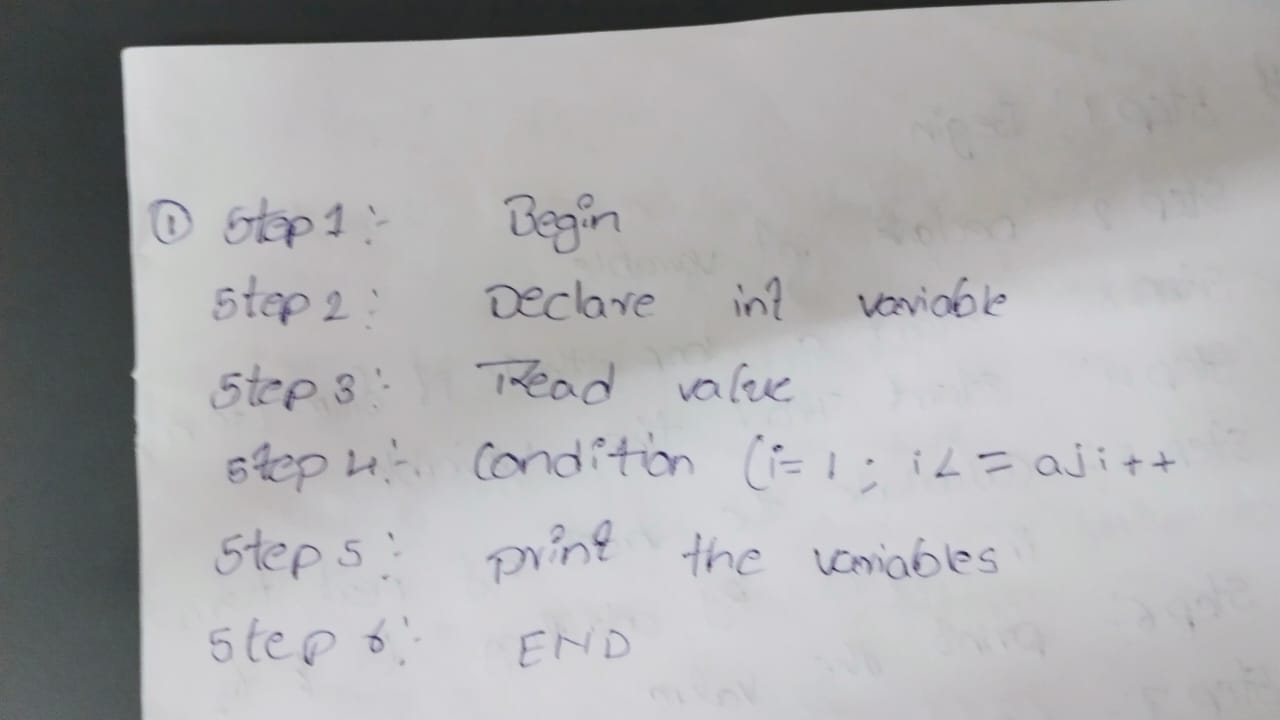 ① Step 1 :- Begin
Step 2 : Declare int variable
Step 3 : Read value
Step 4 :- Condition (i= 1 ; i< = a; i++
Step 5 : print the variables
Step 6 : END